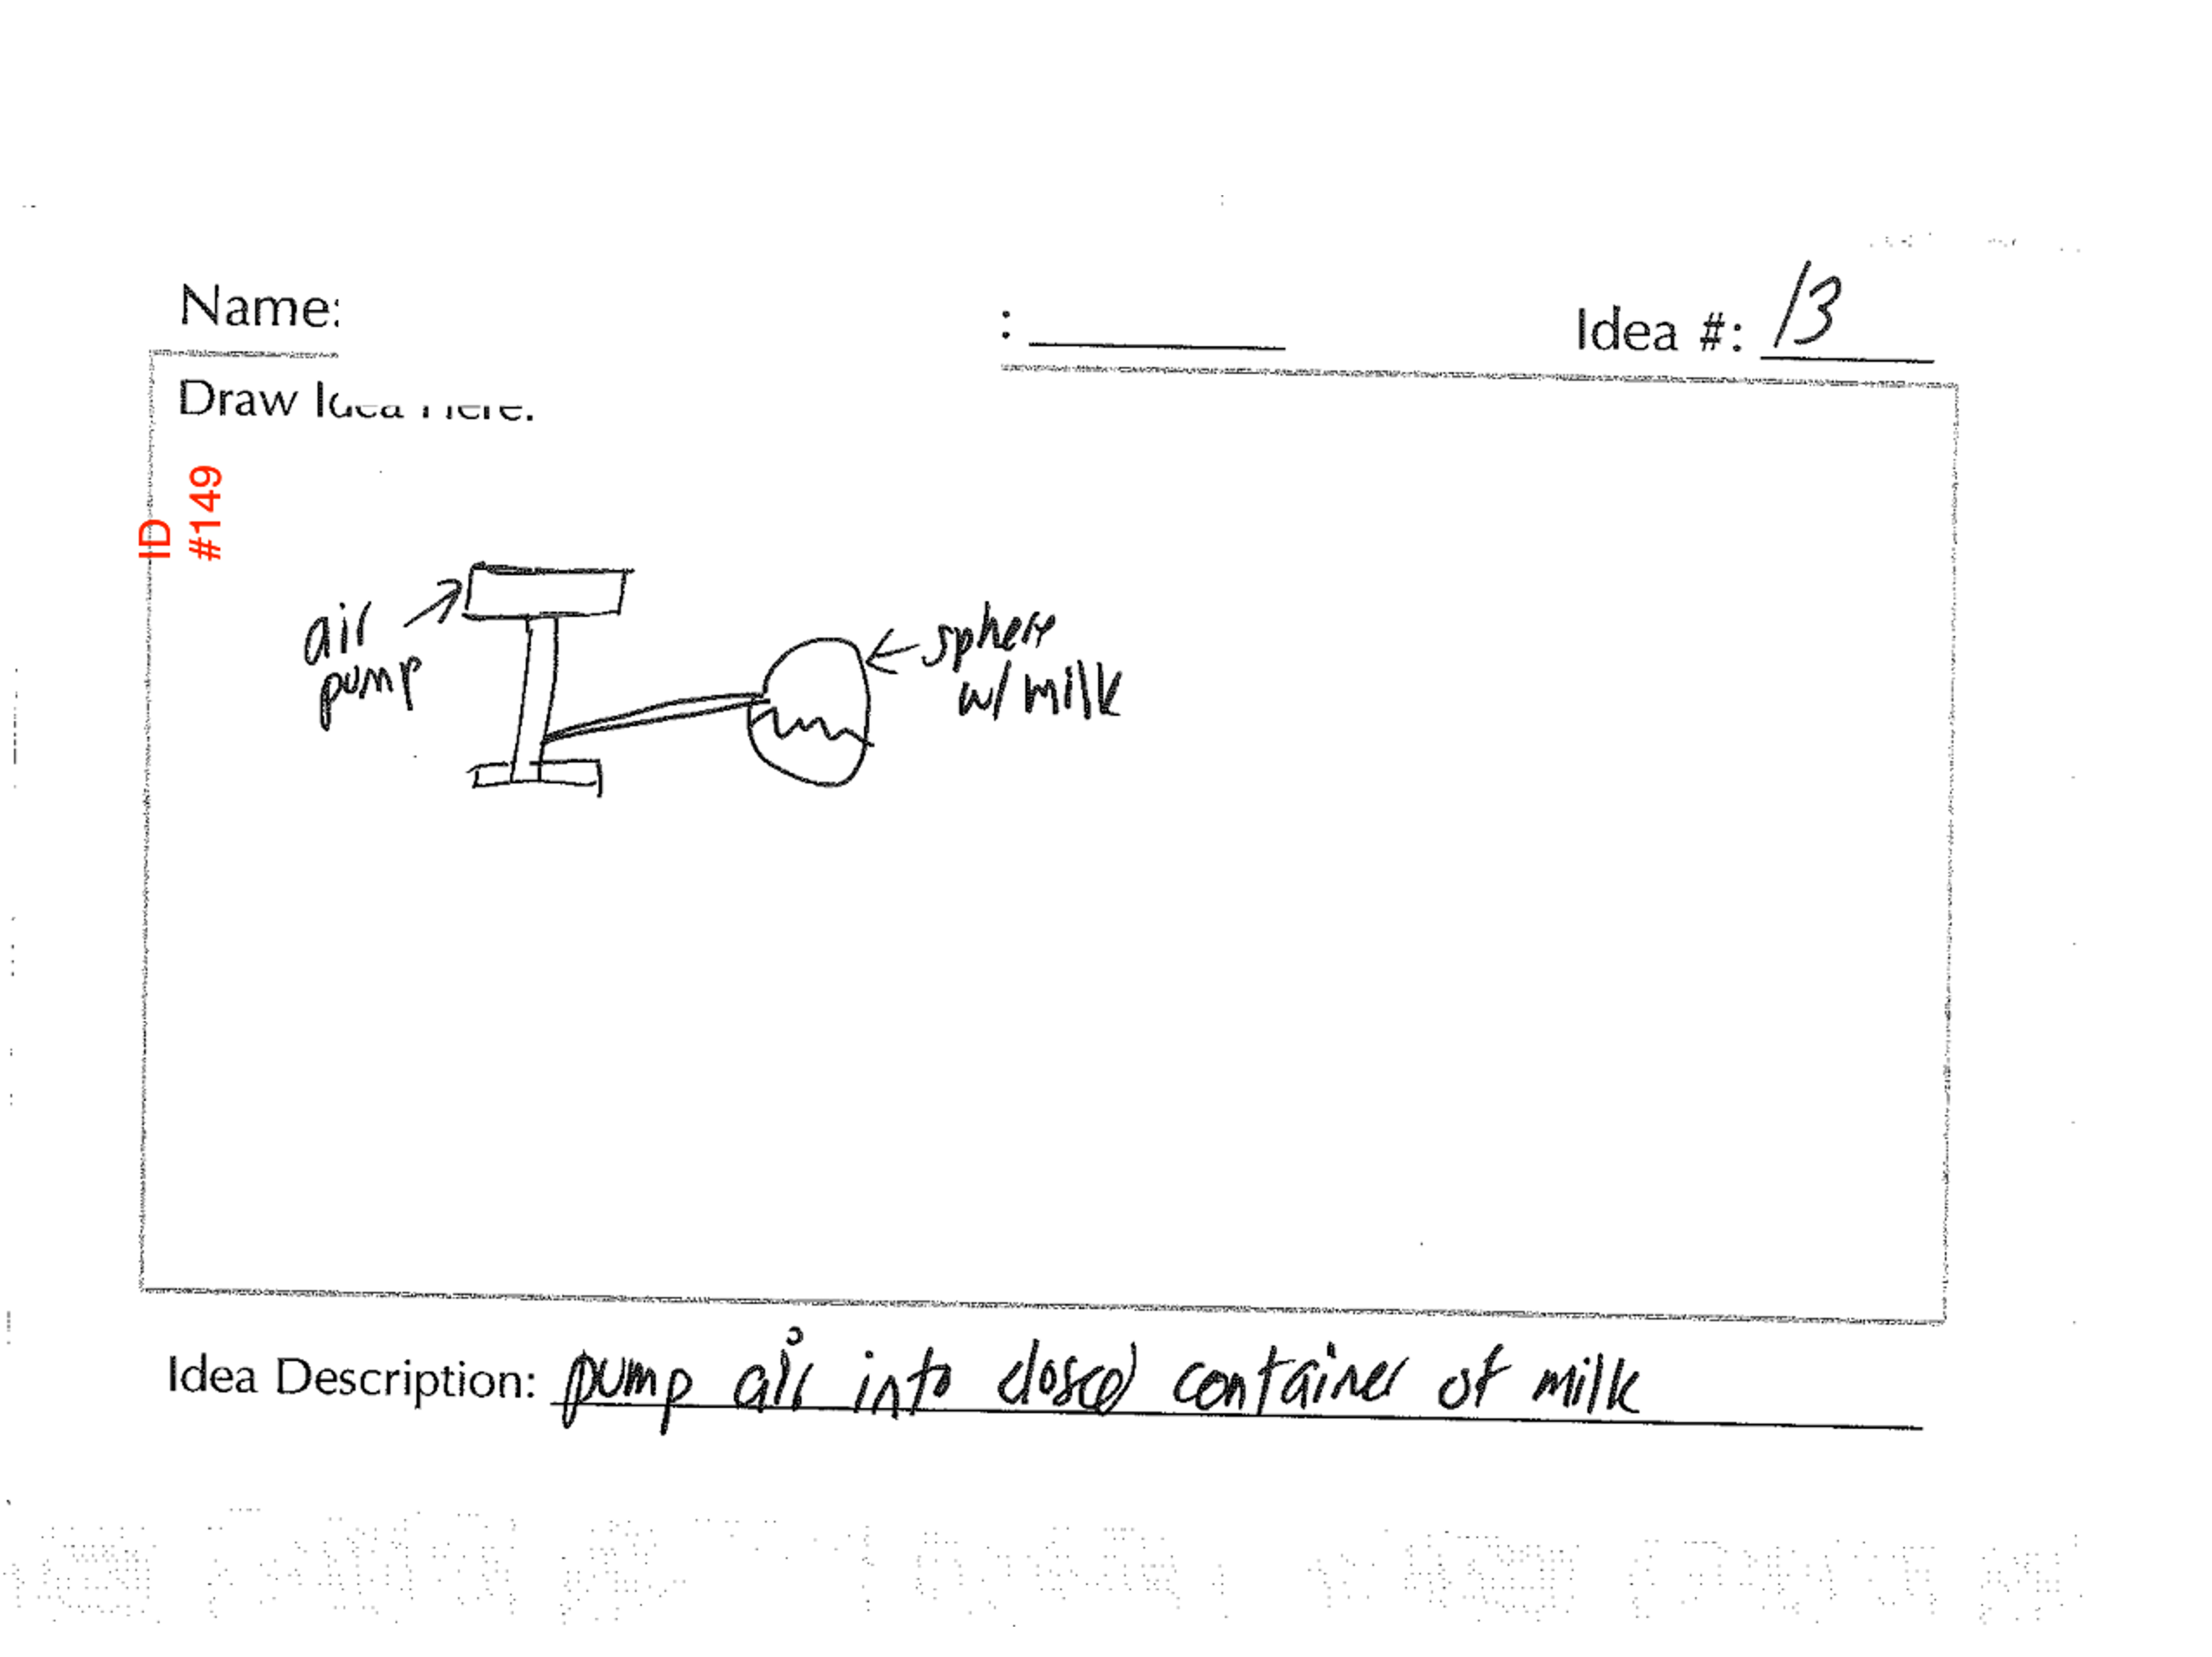 Name:
: Idea #: 13
Draw Idea Here:
ID
#149
air
pump
sphere
w/ milk
Idea Description: pump air into closed container of milk